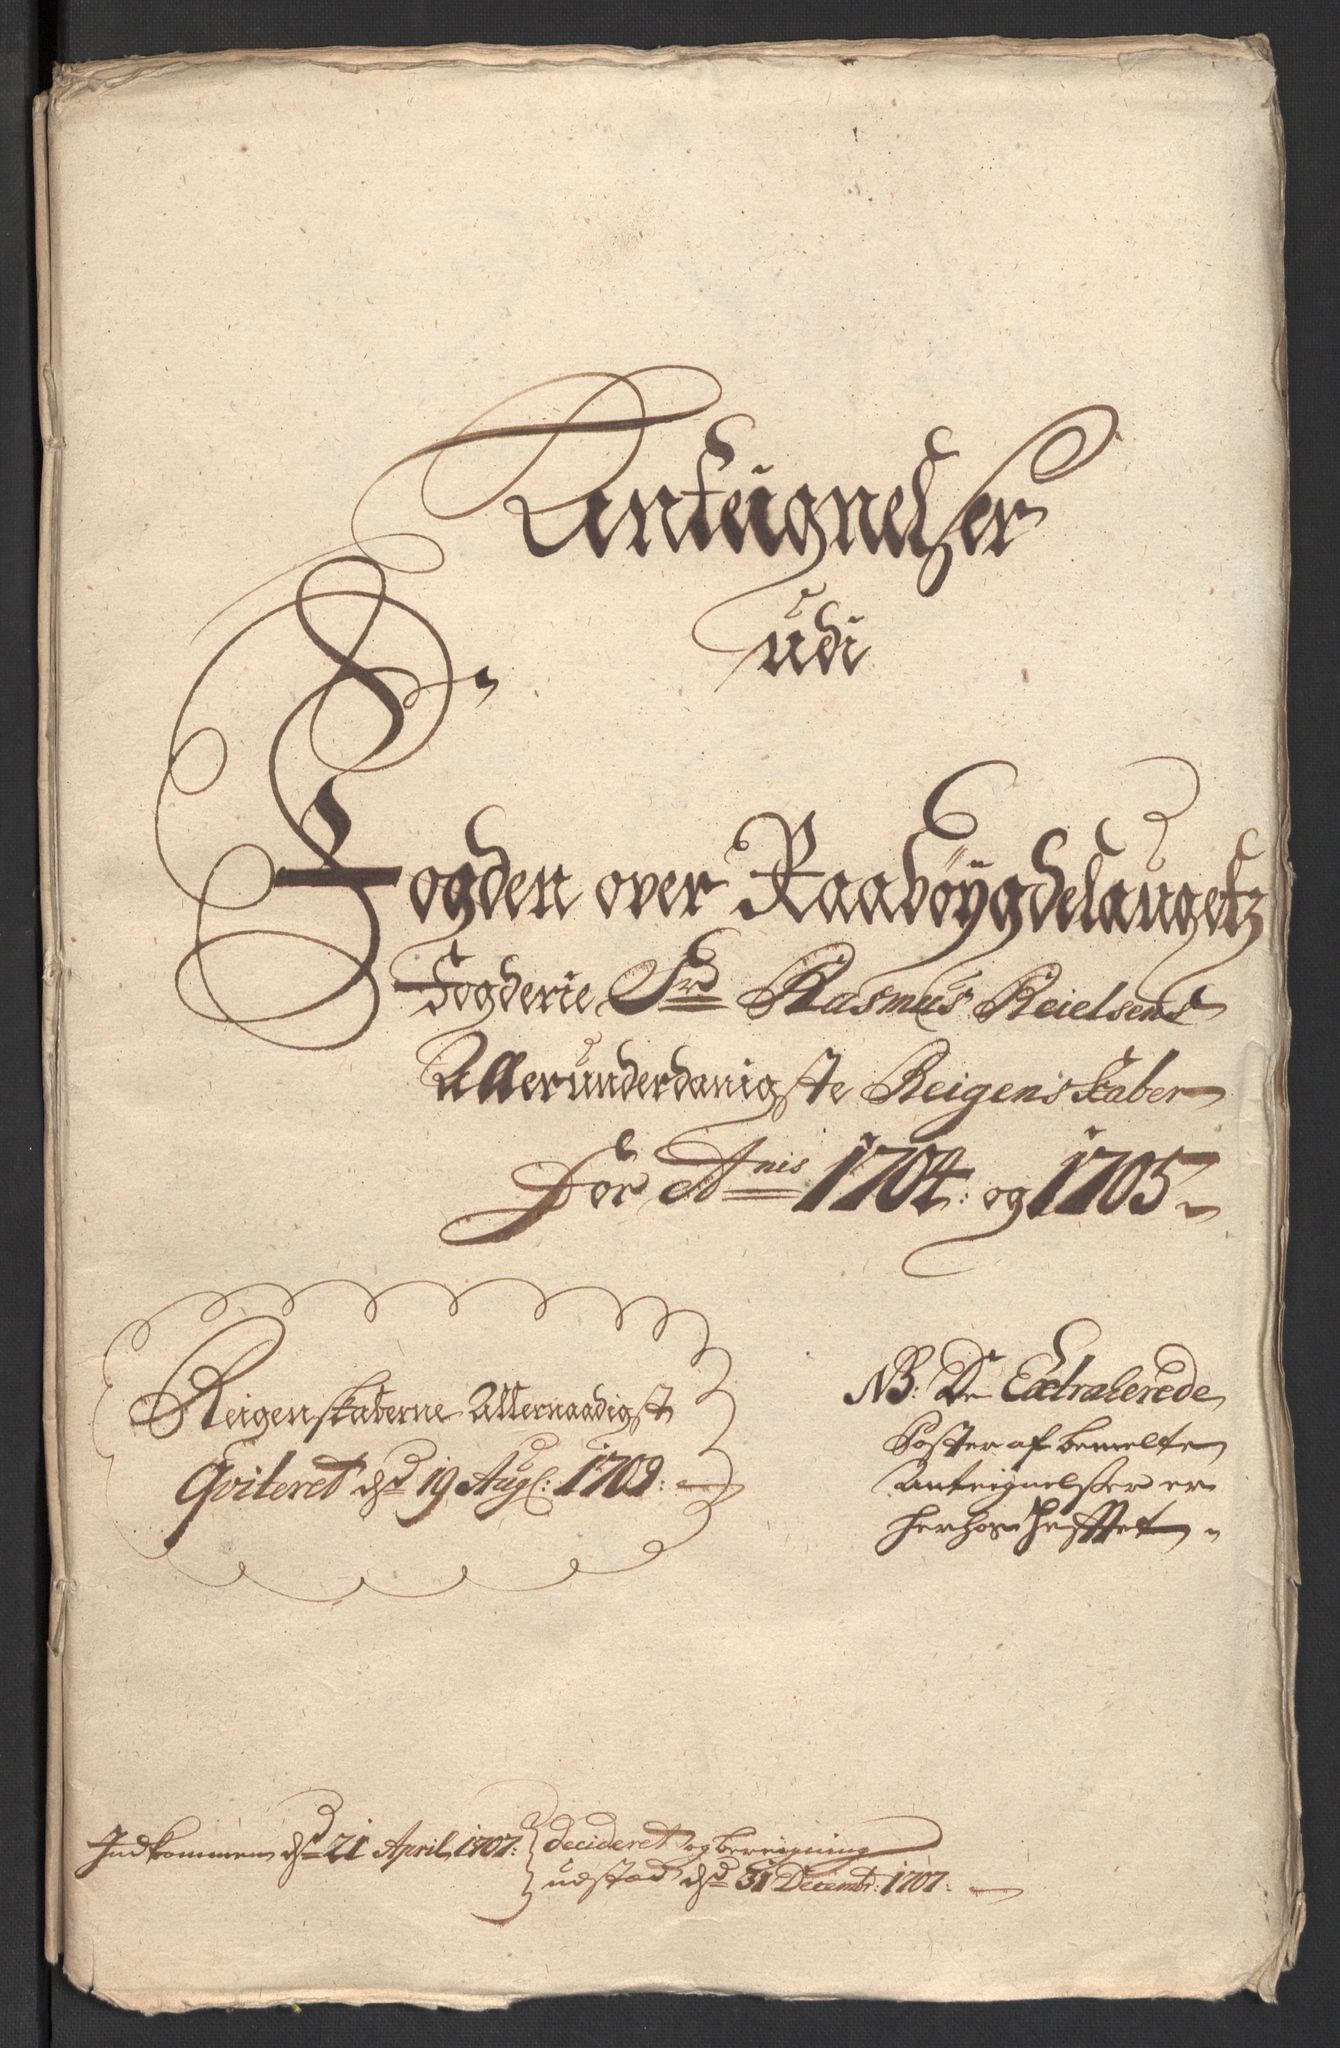 Anteignelser
udi
Fogden over Raabøygdelaugetz
Fogderie Sr Rasmus Keielsens
Allerunderdanigste Reigenskaber
For Anis 1704: og 1705
Reigenskaberne Allernaadigst
Qviteret dsd 19 Aug: 1709:
NB: De Extraherede
Poster af bemelte
Anteignelsser er
herhos hefftet
Indkommen dsd 21 April 1707:
decideret og bereigning
udstæd dsd 31 Decembr: 1707: